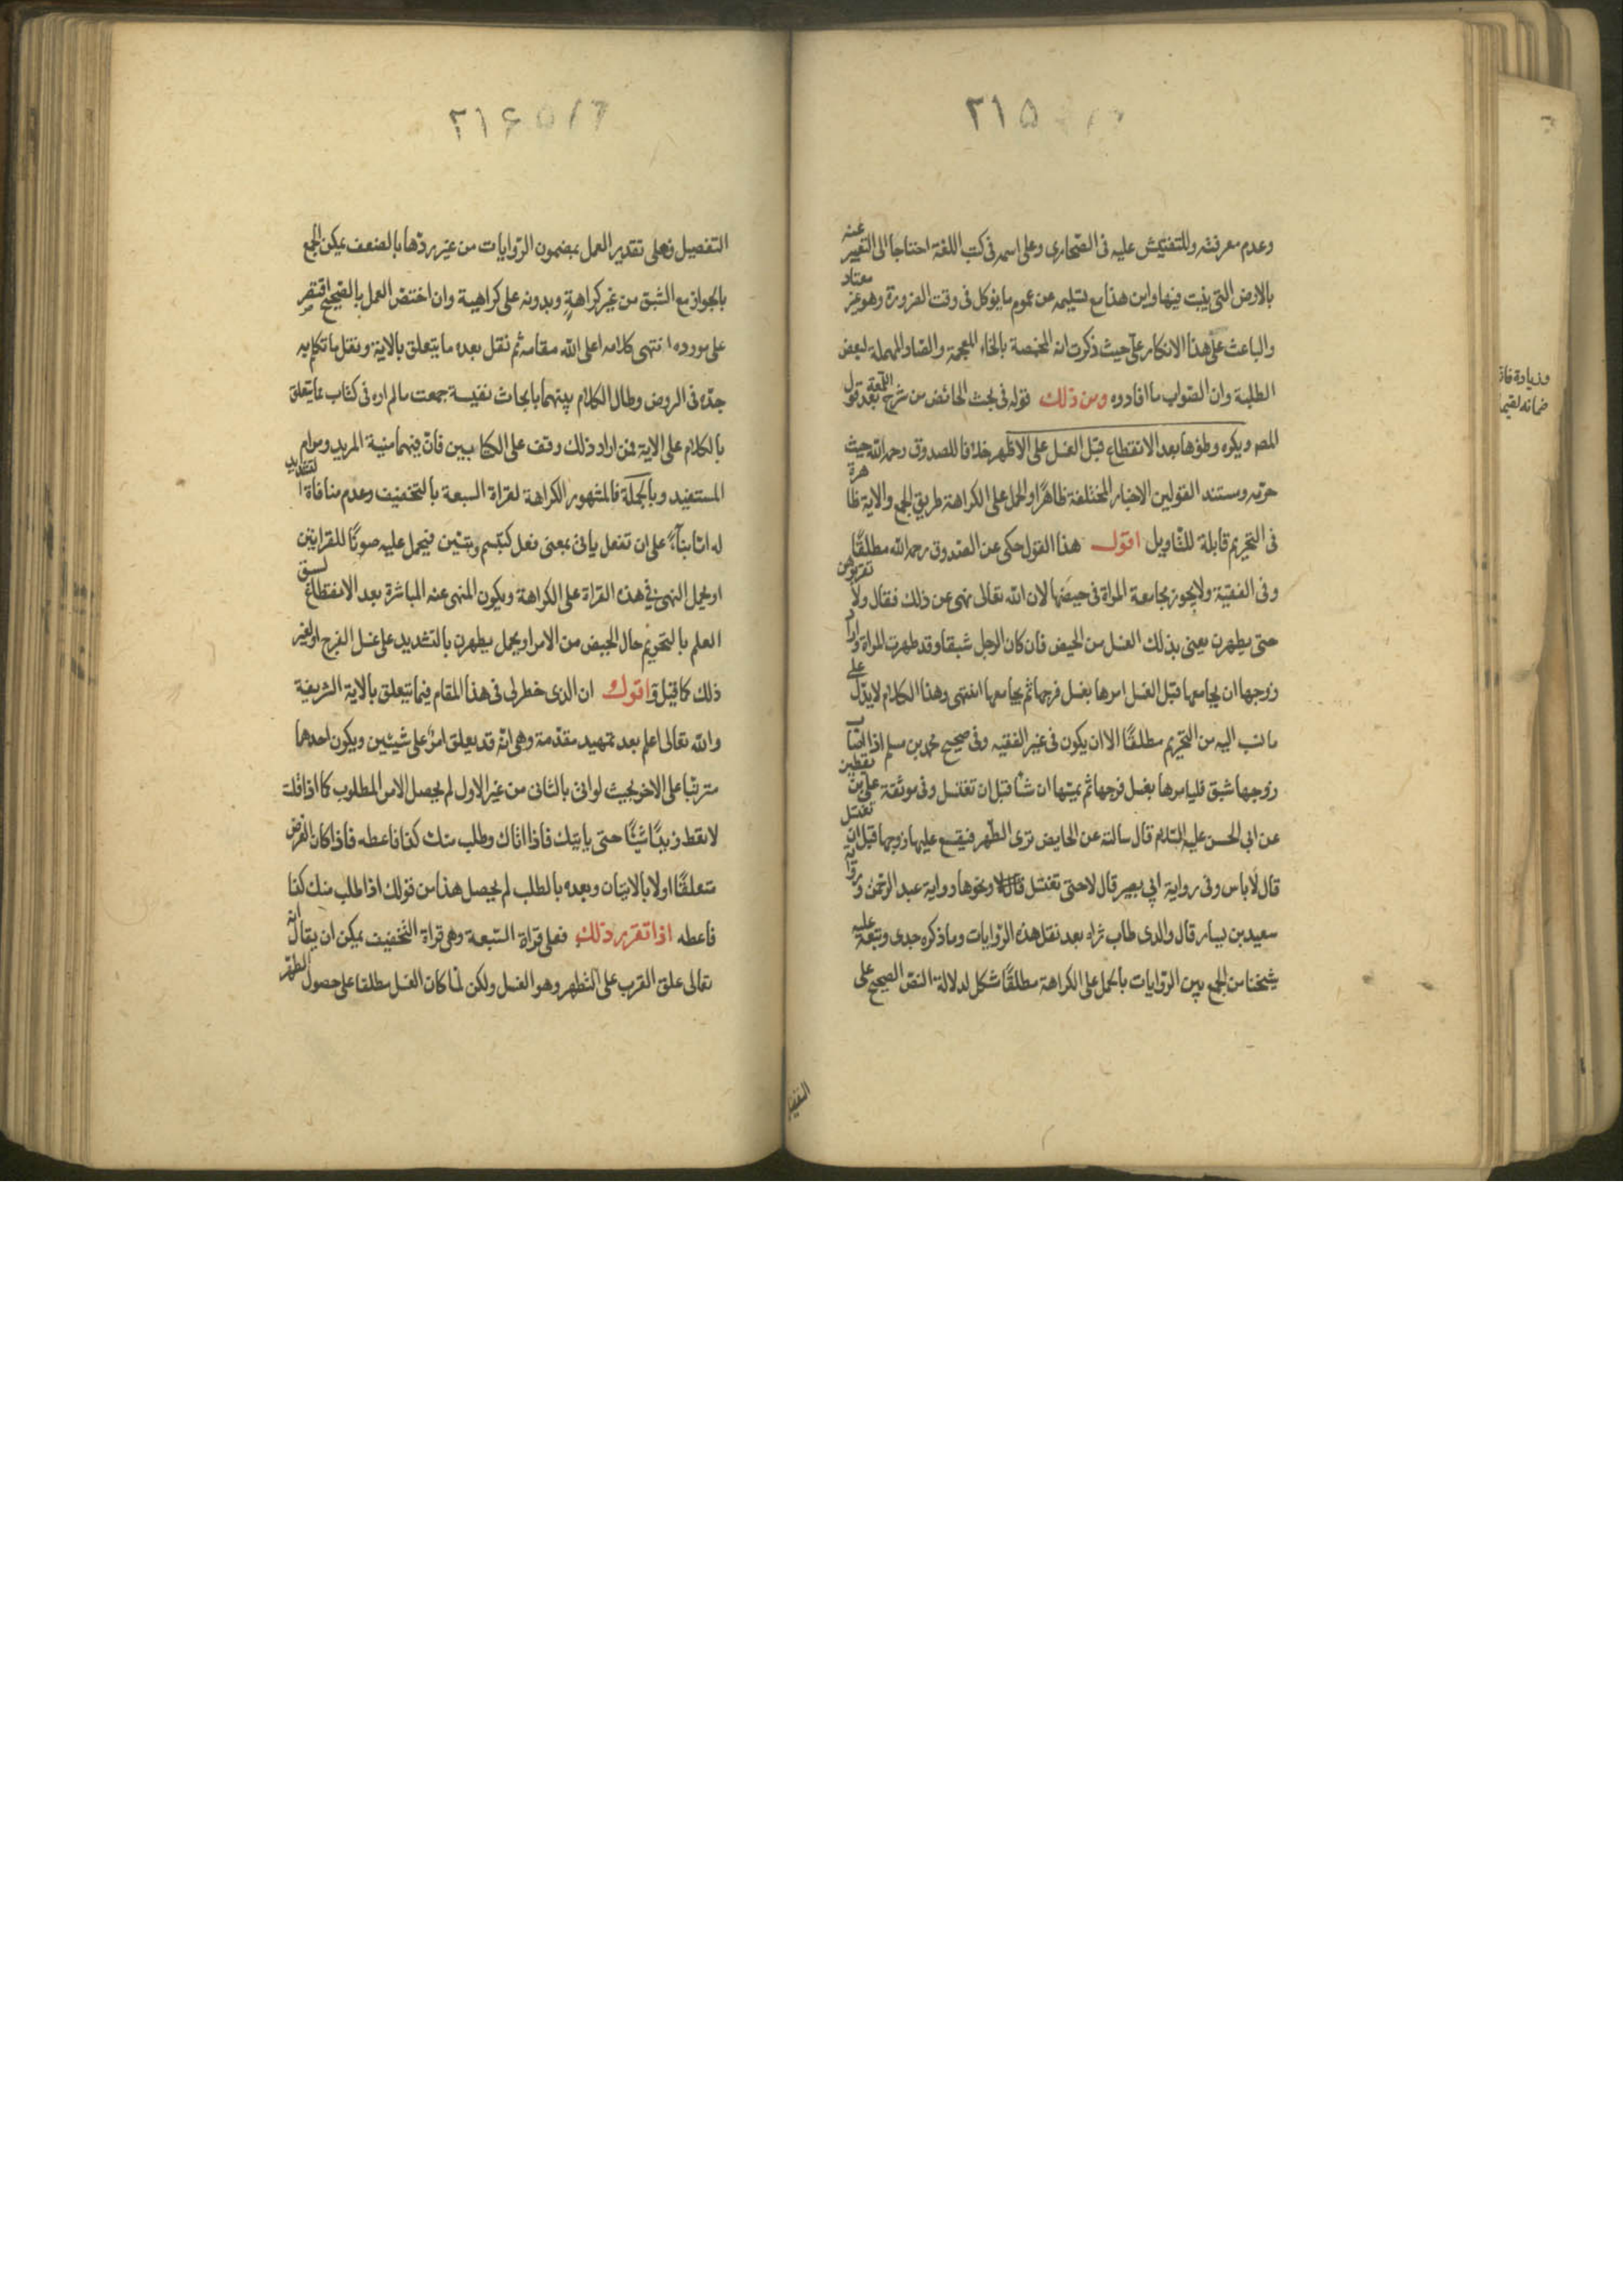 ٢١٥
وعدم معرفته وللتفتيش عليه فى الصحارى وعلى اسمه فى كتب اللغة احتاجا الى التغيير عنه
بالارض التى ينبت فيها واين هذا مع تسليمه عن عموم ما يؤكل فى وقت الضرورة وهو غير معتاد
والباعث على هذا الانكار علّى حيث ذكرت انه المخمصة بالخاء المعجمة والصاد المهملة لبعض
الطلبة وان الصّواب ما افادوه ومن ذلك قوله فى بحث الحائض من شرح اللمعة بعد قول
المصـ ويكره وطؤها بعد الانقطاع قبل الغسل على الاظهر خلافا للصدوق رحمه الله حيث
حرّمه ومستند القولين الاخبار المختلفة ظاهرًا والحمل على الكراهة طريق الجمع والاية ظاهرة
فى التحريم قابلة للتّاويل اقول هذا القول حكى عن الصّدوق رحمه الله مطلقًا
وفى الفقيه ولا يجوز مجامعة المراة فى حيضها لان الله تعالى نهى عن ذلك فقال ولا تقربوهن
حتى يطهرن يعنى بذلك الغسل من الحيض فان كان الرجل شبقا وقد طهرت المراة واراد
زوجها ان يجامعها قبل الغسل امرها بغسل فرجها ثم يجامعها انتهى وهذا الكلام لا يدلّ على
ما نسب اليه من التحريم مطلقًا الا ان يكون فى غير الفقيه وفى صحيح محمد بن مسلم اذا اصاب
زوجها شبق فليامرها بغسل فرجها ثم يمسّها ان شا قبل ان تغتسل وفى موثقة على بن يقطين
عن ابي الحسن عليه السّلام قال سالته عن الحايض ترى الطّهر فيقع عليها زوجها قبل ان تغتسل
قال لا باس وفى رواية ابي بصير قال لا حتى تغتسل قال لا ونحوها رواية عبد الرّحمن ورواية
سعيد بن يسار قال والدى طاب ثراه بعد نقل هذه الرّوايات وما ذكره جدى وتبعه عليه
شيخنا من الجمع بين الرّوايات بالحمل على الكراهة مطلقًا مشكل لدلالة النصّ الصحيح على
التفصيل
وزيادة فان
ضمانه لقيمة
٢١۶
التفصيل فعلى تقدير العمل بمضمون الرّوايات من غير ردّها بالضعف يمكن الجمع
بالجواز مع الشبق من غير كراهةٍ وبدونه على كراهية وان اختصّ العمل بالصّحيح اقتصر
على مورده انتهى كلامه اعلى الله مقامه ثم نقل بعده ما يتعلق بالاية ونقل ما تكلم به
جدّه فى الروض وطال الكلام بينهما بابحاث نفيسة جمعت ما لم اره فى كتاب مما يتعلق
بالكلام على الاية فمن اراد ذلك وقف على الكتابين فانّ فيهما منية المريد ومرام
المستفيد وبالجملة فالمشهور الكراهة لقراة السبعة بالتخفيف وعدم منافاة التشديد
له امّا بناءً على ان تفعل ياتى بمعنى فعل كتبسّم وتبيّن فيحمل عليه صونًا للقرايتين
او يحمل النهى فى هذه القراة على الكراهة ويكون المنهى عنه المباشرة بعد الانقطاع لسبق
العلم بالتحريم حال الحيض من الامر او يحمل يطهرن بالتشديد على غسل الفرج او لغير
ذلك كما قيل واقول ان الذى خطر لى فى هذا المقام فيما يتعلق بالاية الشريفة
والله تعالى اعلم بعد تمهيد مقدّمة وهى انّه قد يعلق امرٌ على شيئين ويكون احدهما
مترتّبا على الاخر بحيث لو اتى بالثانى من غير الاول لم يحصل الامر المطلوب كما اذا قلت
لا تعط زيدًا شيئًا حتى ياتيك فاذا اتاك وطلب منك كذا فاعطه فاذا كان الغرض
متعلقًا اولا بالاتيان وبعده بالطلب لم يحصل هذا من قولك اذا طلب منك كذا
فاعطه اذا تقرر ذلك فعلى قراة السّبعة وهى قراة التّخفيف يمكن ان يقال انه
تعالى علق القرب على التّطهر وهو الغسل ولكن لمّا كان الغسل مطلقا على حصول الطهر